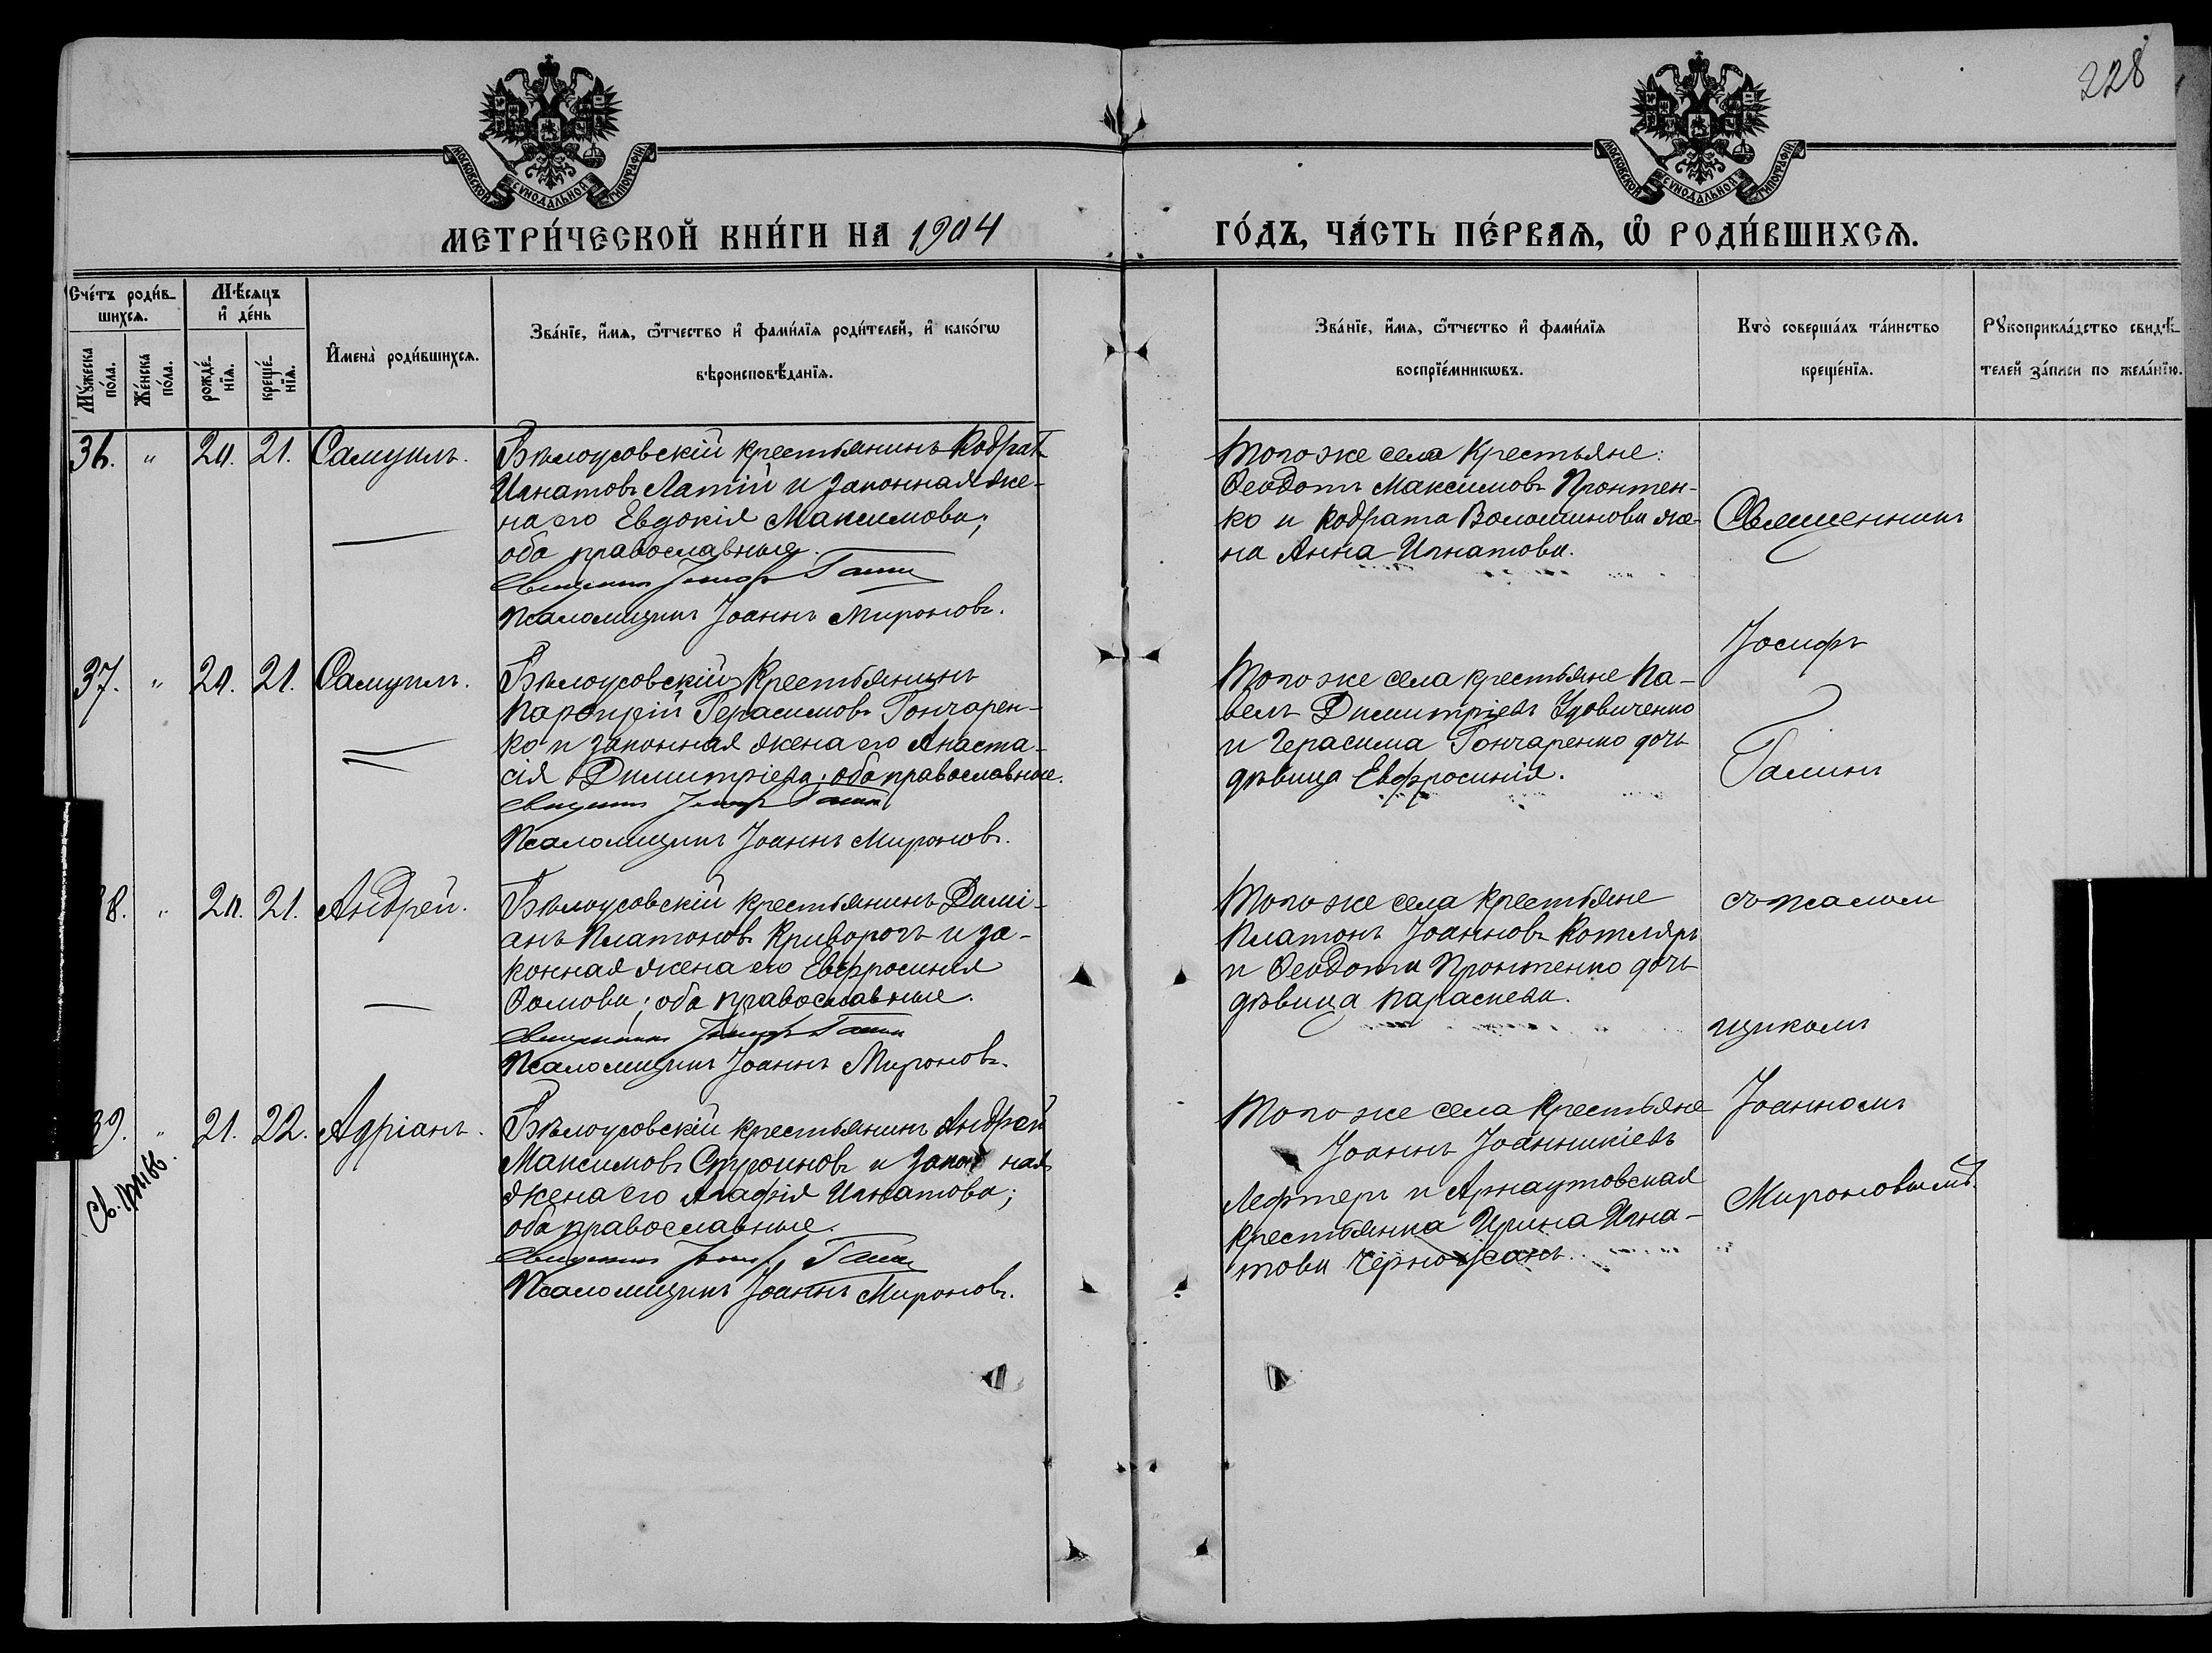 228
МОСКОВСКОЙ СѴНОДАЛЬНОЙ ТИПОГРАФІИ
МОСКОВСКОЙ СѴНОДАЛЬНОЙ ТИПОГРАФІИ
МЕТРИ́ЧЕСКОЙ КНИ́ГИ НА 1904
ГО́ДЪ, ЧА́СТЬ ПЕ́РВАѦ, Ѡ҆ РОДИ́ВШИХСѦ.
Сче́тъ роди́в-
шихсѧ.
Мꙋ́жеска по́ла.
Же́нска по́ла.
Мѣ́сѧцъ
и҆ де́нь
рожде́-
нїѧ.
креще́-
нїѧ.
И҆мена̀ роди́вшихсѧ.
Зва́нїе, и҆́мѧ, ѻ҆́тчество и҆ фами́лїѧ роди́телей, и҆ како́гѡ
вѣроисповѣ́данїѧ.
Зва́нїе, и҆́мѧ, ѻ҆́тчество и҆ фами́лїѧ
воспрїе́мникѡвъ.
Кто̀ соверша́лъ та́инство
креще́нїѧ.
Рꙋкоприкла́дство свидѣ́-
телей за́писи по жела́нїю.
36. " 20. 21. Самуилъ.
Бѣлоусовскій крестьянинъ Кодратъ
Игнатовъ Латій и законная же-
на его Евдокія Максимова;
оба православные.
Священникъ Іосифъ Галинъ
Псаломщикъ Іоаннъ Мироновъ.
Того же села крестьяне:
Ѳеодотъ Максимовъ Пронтен-
ко и Кодрата Волошинова же-
на Анна Игнатова.
Священникъ
Іосифъ
37. " 20. 21. Самуилъ.
Бѣлоусовскій крестьянинъ
Парфирій Герасимовъ Гончарен-
ко и законная жена его Анаста-
сія Димитріева; оба православные.
Священникъ Іосифъ Галинъ
Псаломщикъ Іоаннъ Мироновъ.
Того же села крестьяне Па-
велъ Димитріевъ Удовиченко
и Герасима Гончаренко дочь
дѣвица Евфросинія.
Галинъ
38. " 20. 21. Андрей.
Бѣлоусовскій крестьянинъ Дамі-
анъ Платоновъ Криворогъ и за-
конная жена его Евфросинія
Ѳомова; оба православные.
Священникъ Іосифъ Галинъ
Псаломщикъ Іоаннъ Мироновъ.
Того же села крестьяне
Платонъ Іоанновъ Котляръ
и Ѳеодота Пронтенко дочь
дѣвица Параскева.
съ псалом
щикомъ
39. " 21. 22. Адріанъ.
Бѣлоусовскій крестьянинъ Андрей
Максимовъ Стужиновъ и законная
жена его Агафія Игнатова;
оба православные.
Священникъ Іосифъ Галинъ
Псаломщикъ Іоаннъ Мироновъ.
Того же села крестьяне
Іоаннъ Іоанникіевъ
Лефтеръ и Арнаутовская
крестьянка Ирина Игна-
това Черножанъ.
Іоанномъ
Мироновымъ.